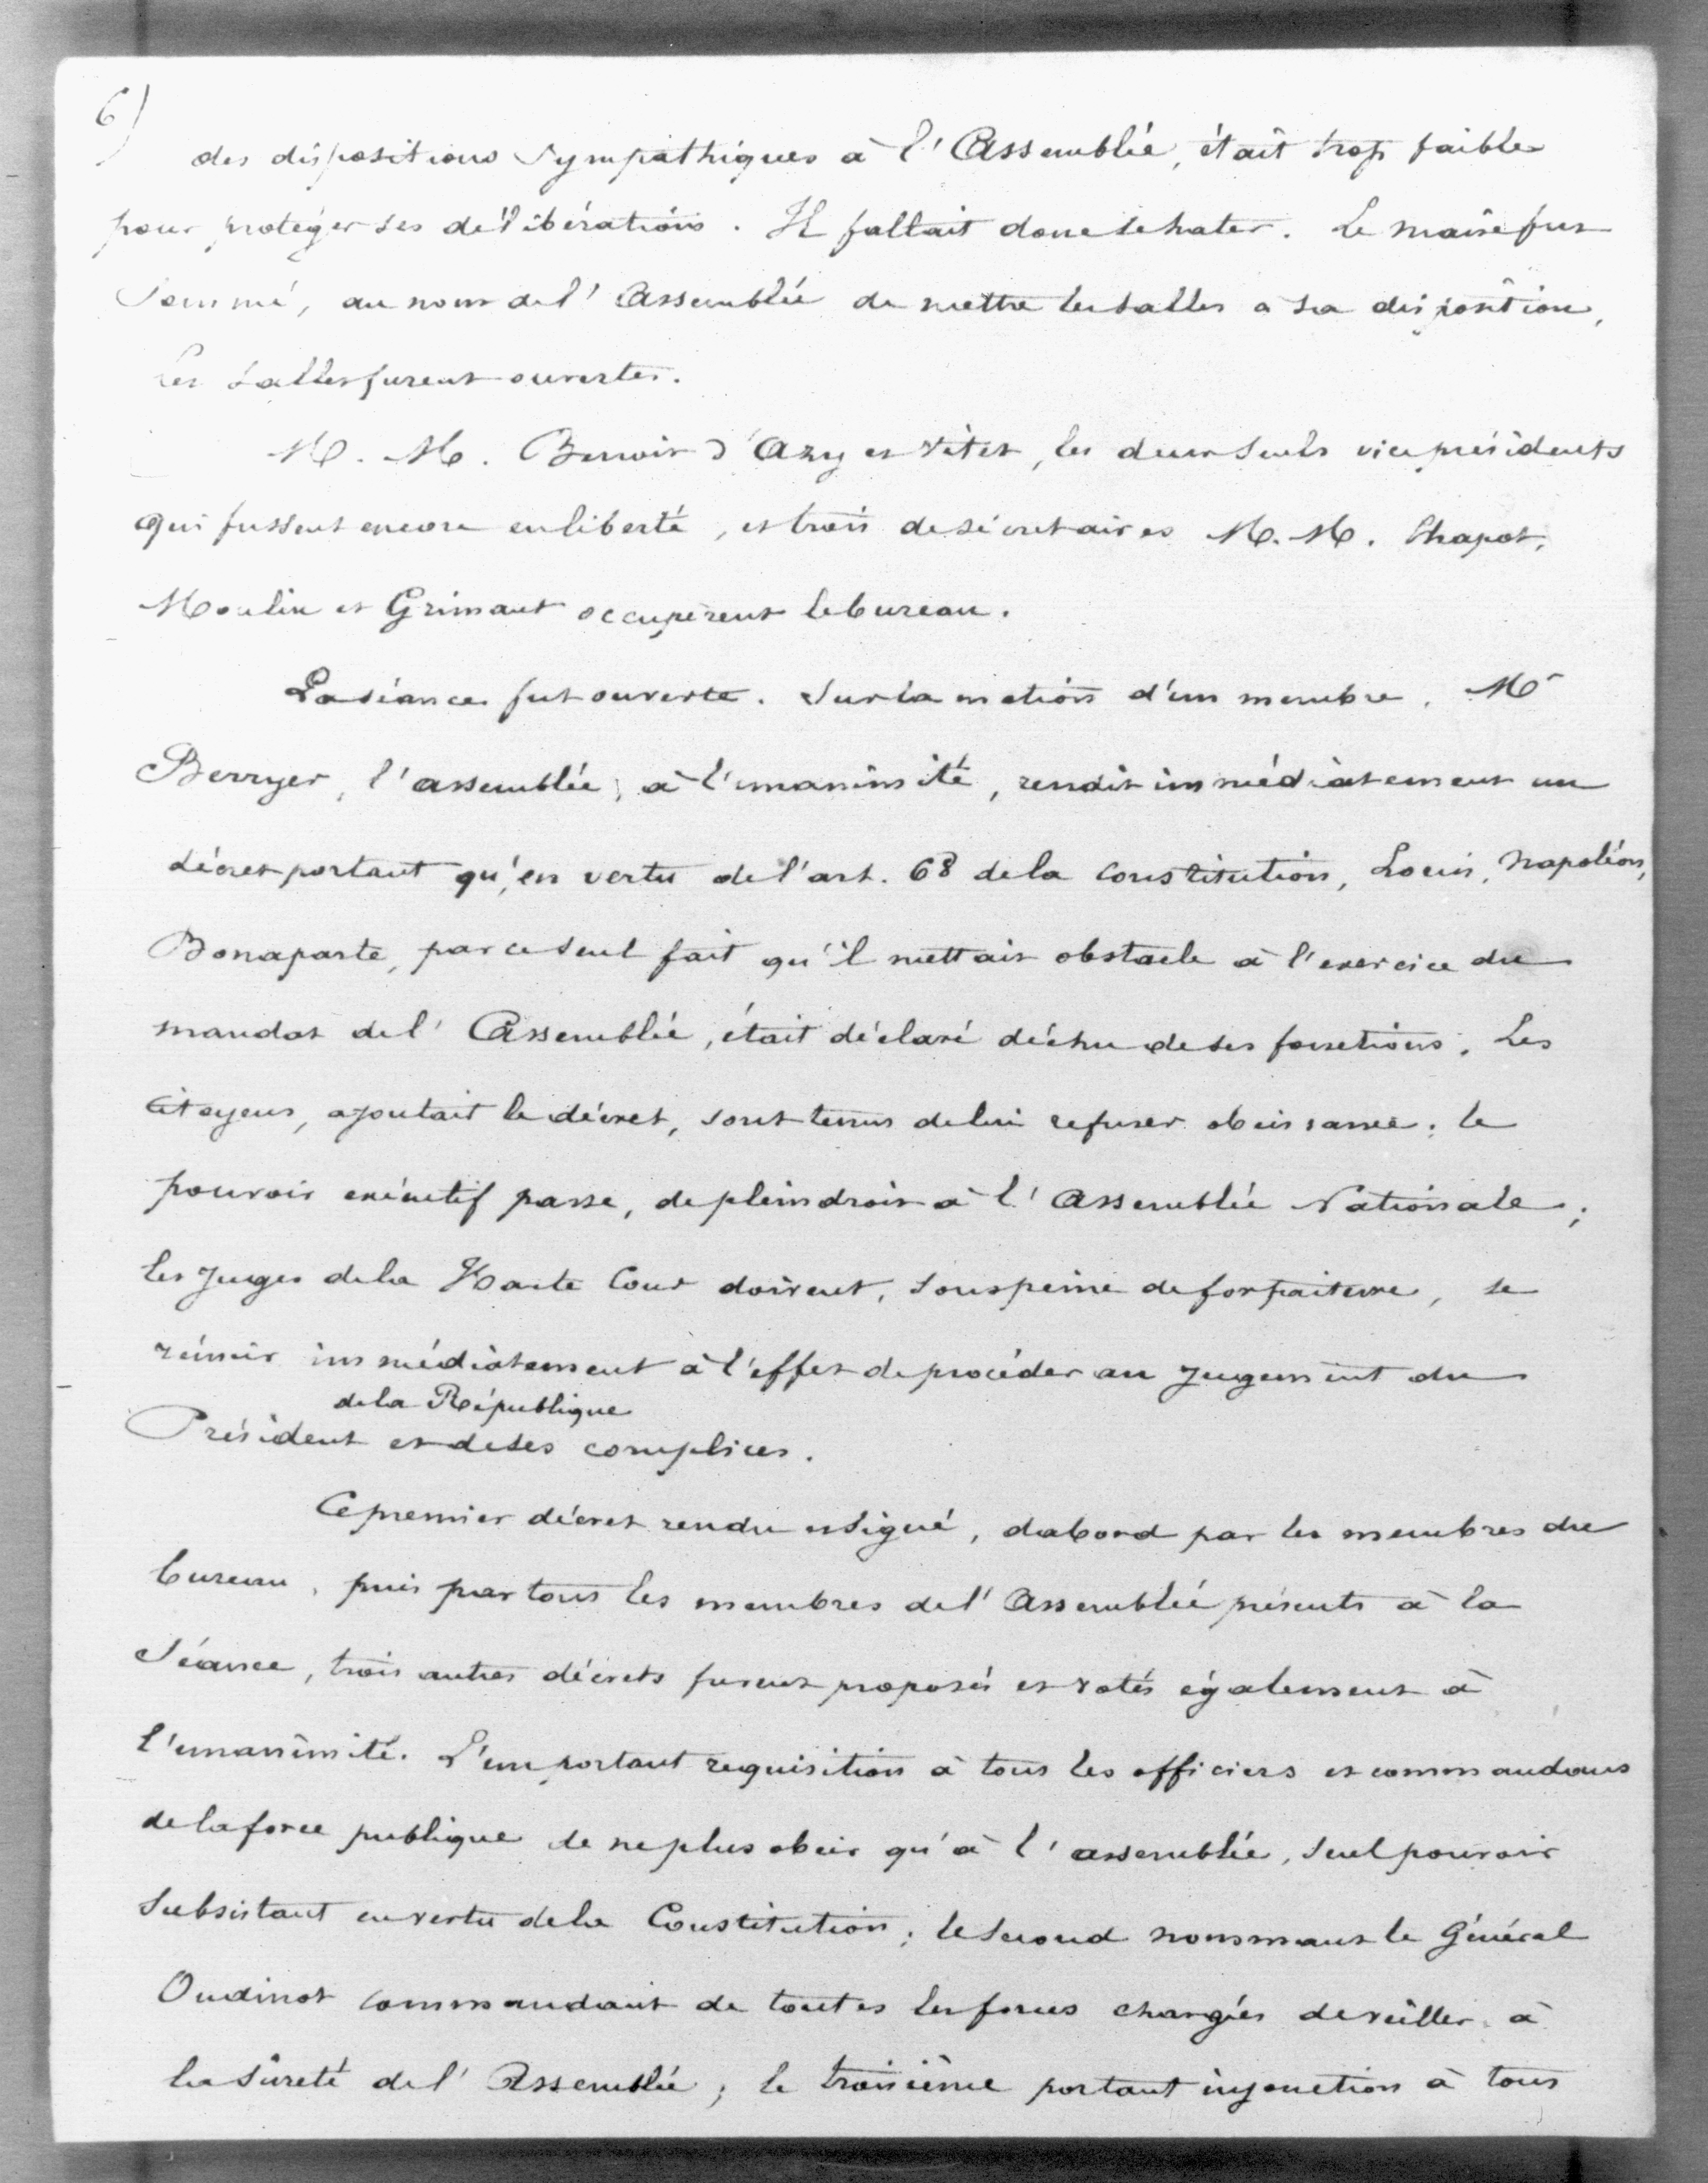 6)
des dispositions sympathiques à l'Assemblée, était trop faible
pour protéger ses délibérations. Il fallait donc se hater. Le maire fut
sommé, au nom de l'Assemblée de mettre les salles a sa disposition,
les salles furent ouvertes.
M. M. Benoit d'Azy et Vitet, les deux seuls vice présidents
qui fussent encore en liberté, et trois de sécretaires M. M. Chapot,
Moulin et Grimaut occupèrent le bureau.
La séance fut ouverte. Sur la motion d'un membre, Mr
Berryer, l'assemblée, à l'unanimité, rendit immédiatement un
décret portant qu'en vertu de l'art. 68 de la Constitution, Louis, Napoléon,
Bonaparte, par ce seul fait qu'il mettait obstacle à l'exercice du
mandat de l'Assemblée, était déclaré déchu de ses fonctions. Les
citoyens, ajoutait le décret, sont tenus de lui refuser obeissance; le
pouvoir exécutif passe, de plein droit à l'Assemblée Nationale;
les juges de la Haute Cour doivent, sous peine de forfaiture, se
réunir immédiatement à l'effet de procéder au jugement du
de la République
Président et de ses complices.
Ce premier décret rendu et signé, dabord par les membres du
bureau, puis par tous les membres de l'Assemblée présents à la
séance, trois autres décrets furent proposés et votés également à
l'unanimité. L'un portant requisition à tous les officiers et commandans
de la force publique de ne plus obeir qu'à l'assemblée, seul pouvoir
subsistant en vertu de la Constitution; le second nommant le Général
Oudinot commandant de toutes les forces chargées de veiller à
la sûreté de l'Assemblée; le troisième portant injonction à tous